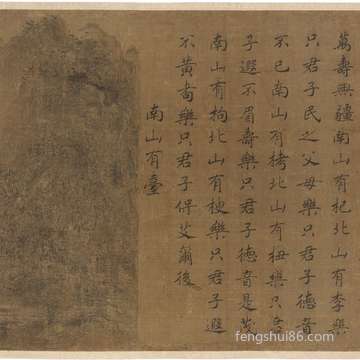 萬壽無疆南山有杞北山有李樂
只君子民之父母樂只君子德音
不已南山有栲北山有杻樂只君
子遐不眉壽樂只君子德音是茂
南山有枸北山有楰樂只君子遐
不黃耇樂只君子保艾爾後
南山有臺
fengshui86.com